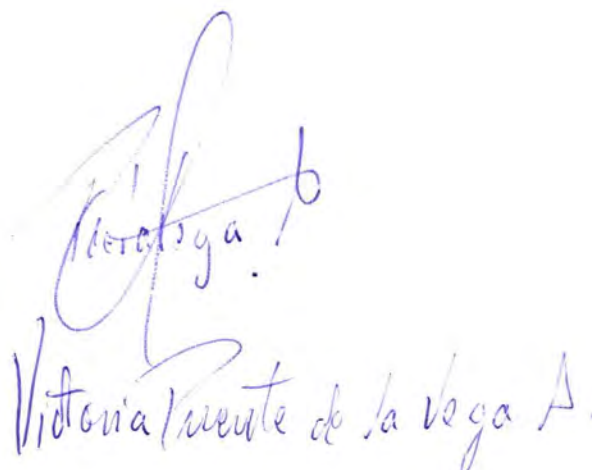 Victoria Puente de la Vega A.